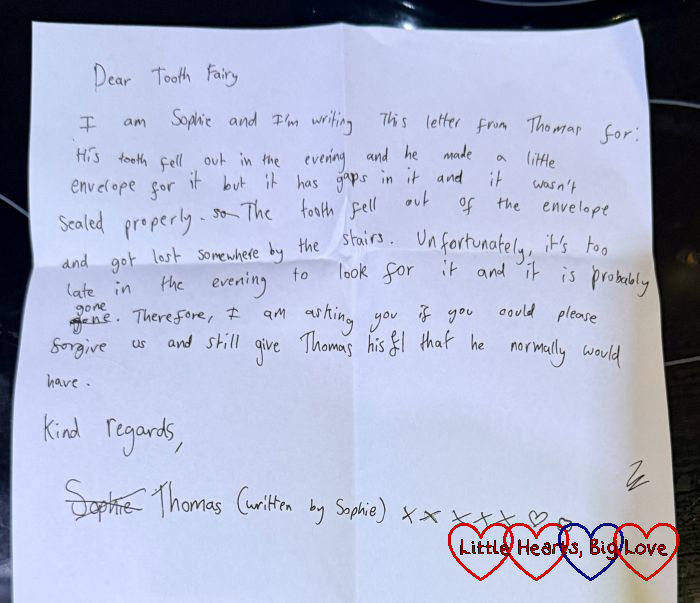 Dear Tooth Fairy
I am Sophie and I'm writing This letter from Thomas for:
His tooth fell out in the evening and he made a little
envelope for it but it has gaps in it and it wasn't
sealed properly. so The tooth fell out of the envelope
and got lost somewhere by the stairs. Unfortunately, it's too
late in the evening to look for it and it is probably
gone
gone. Therefore, I am asking you if you could please
forgive us and still give Thomas his £1 that he normally would
have.
Kind regards,
Sophie Thomas (written by Sophie) x x x x x ♡ ♡
Little Hearts, Big Love